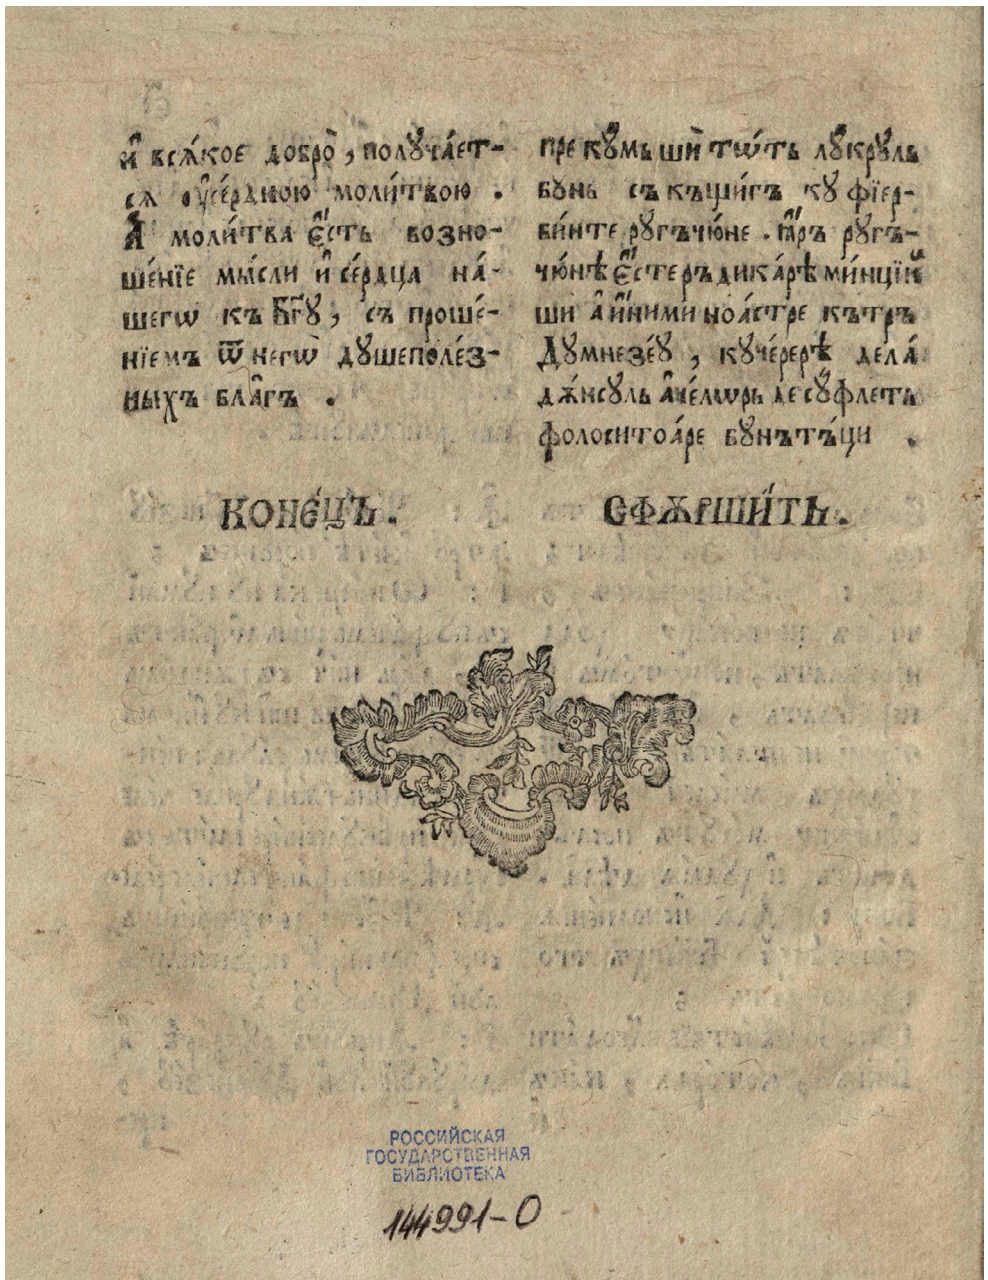 и҆ всѧ́кое добро̀, получа́ет-
сѧ ᲂу҆се́рдною моли́твою .
А҆ моли́тва є҆́сть возно-
ше́нїе мы́сли и҆ се́рдца на́-
шегѡ къ Бг҃у, съ проше́-
нїемъ ѿ негѡ̀ душеполе́з-
ныхъ бла̑гъ .
КОНЕ́ЦЪ.
прекꙋ́мь шѝ тѡ́тъ лꙋ́крꙋль
бꙋнь съ къщи́гъ кꙋ фїер-
би́нте рꙋгъчю́не . ꙗ҆́ръ рꙋгъ-
чю́нѣ є҆́сте ръдика́рѣ ми́нцїй
ши а҆ и҆́ними ноа́стре кътръ
Дꙋмнезе́ꙋ, кꙋ че́рерѣ дела́
дѫ́нсꙋль а҆че́лѡрь де сꙋ́флетъ
фолоситоа́ре бꙋнътъ́ци .
СФѪРШИ́ТЪ.
РОССИЙСКАЯ
ГОСУДАРСТВЕННАЯ
БИБЛИОТЕКА
144991-О